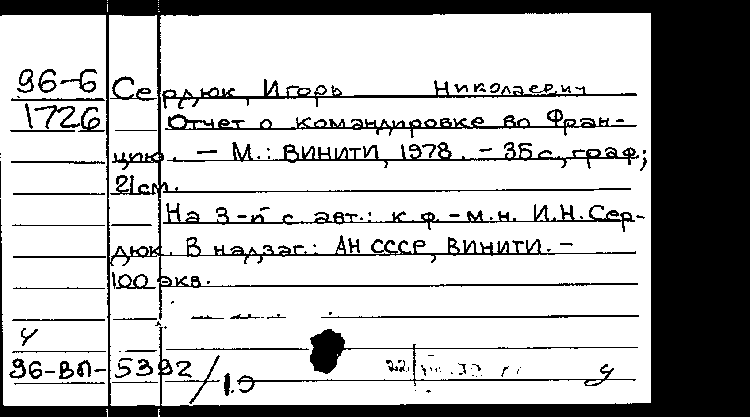 96-6 Сердюк, Игорь Николаевич
1726 Отчет о командировке во Фран-
цию. - М.: ВИНИТИ, 1978. - 35 с., граф;
21 см.
На 3-й с авт.: к.ф.-м.н. И.Н. Сер-
дюк. В надзаг.: АН СССР, ВИНИТИ. -
100 экз.
96-ВП-5392/